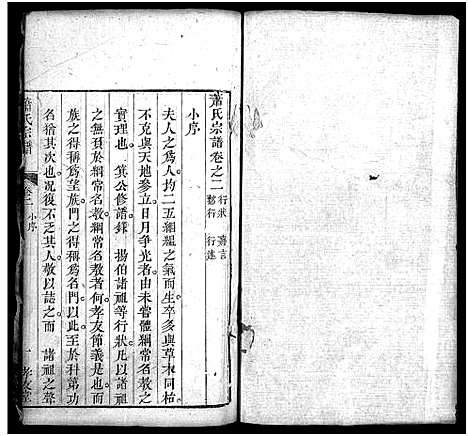 蕭氏宗譜卷之二 行狀 嘉言 懿行 行述
小序
夫人之爲人均二五絪縕之氣而生卒多與草木同枯
不克與天地參立日月爭光者由未嘗體綱常名教之
實理也箕公修譜錄 揚伯諸祖等行狀凡以諸祖
之無忝於綱常名教綱常名教者何孝友節義是也而
族之得稱爲望族門之得稱爲名門以此至於科第功
名猶其次也况復不乏其人敬以誌之而 諸祖之聲
蕭氏宗譜 卷二 小序 一 孝友堂